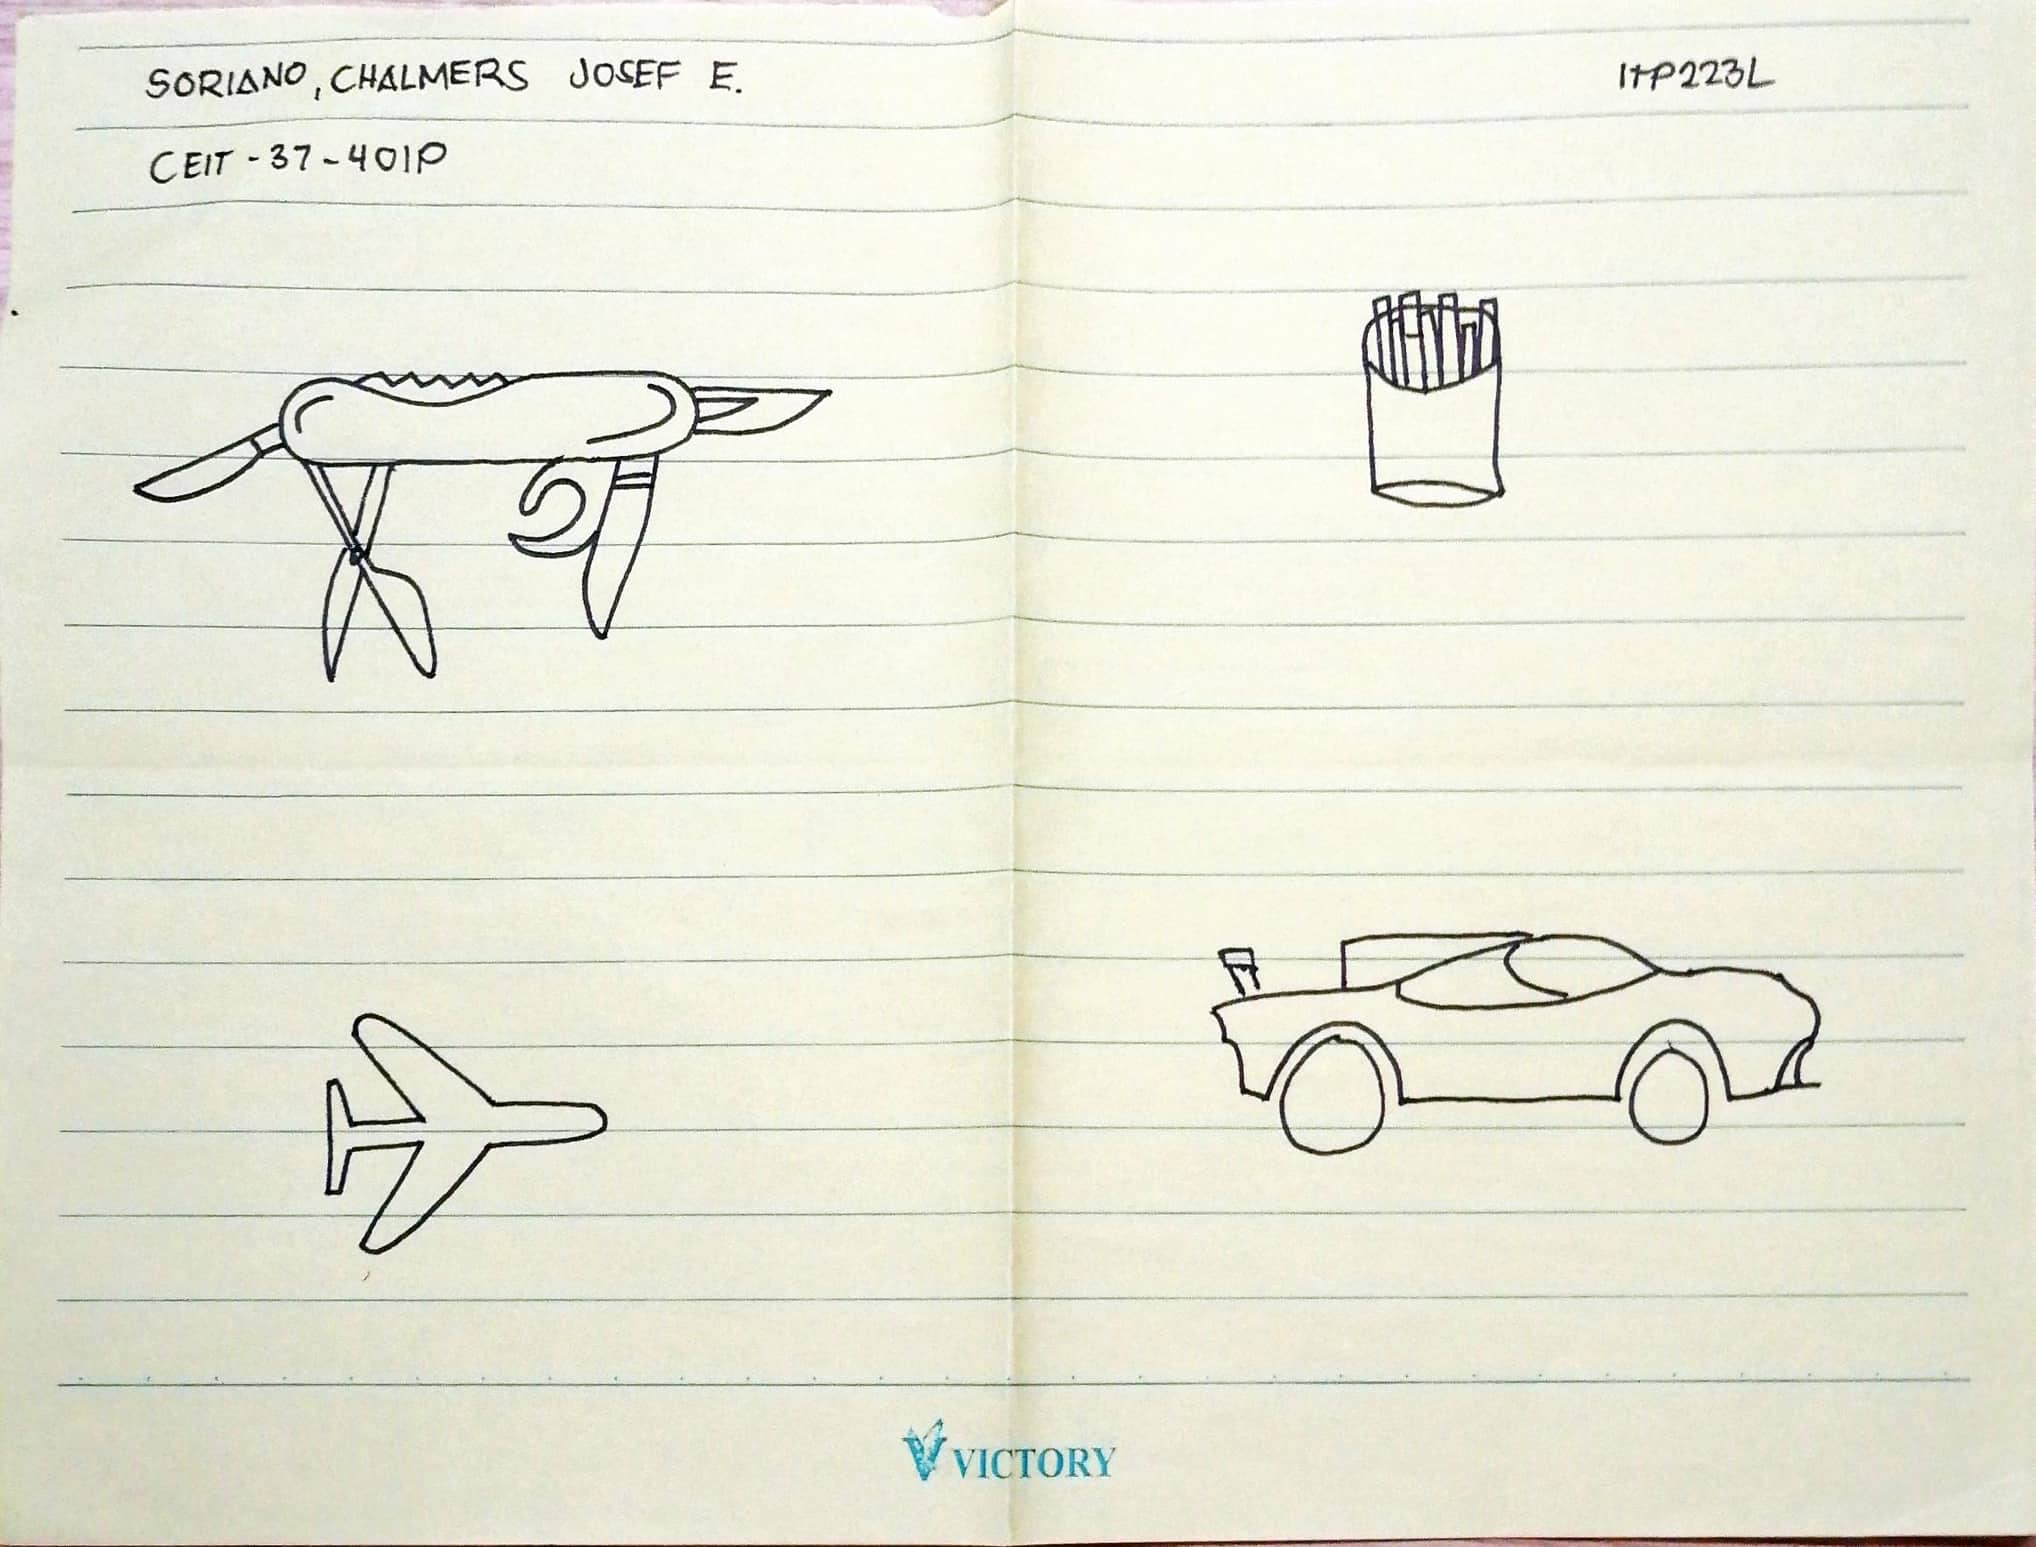 SORIANO, CHALMERS JOSEF E.
ITP223L
CEIT-37-401P
VICTORY